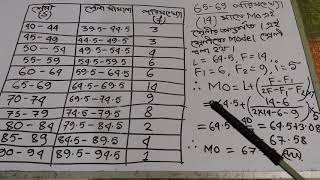 শ্রেণী (S) শ্রেণী সীমানা পরিসংখ্যা (f)
40 - 44 39.5 - 44.5 3
45 - 49 44.5 - 49.5 3
50 - 54 49.5 - 54.5 4
55 - 59 54.5 - 59.5 5
60 - 64 59.5 - 64.5 6
65 - 69 64.5 - 69.5 14
70 - 74 69.5 - 74.5 9
75 - 79 74.5 - 79.5 8
80 - 84 79.5 - 84.5 2
85 - 89 84.5 - 89.5 4
90 - 94 89.5 - 94.5 1
65-69 পরিসংখ্যা
(14)
65-69
L = 64.5, F=14,
F₁=6, F₂=9, i=5
∴ MO = L+(F-F₁
2F-F₁-F₂
= 64.5+(14-6
2×14-6-9)×5
= 64.5+ 40 = 64.5+3.08
= 67.58
∴ MO = 67.